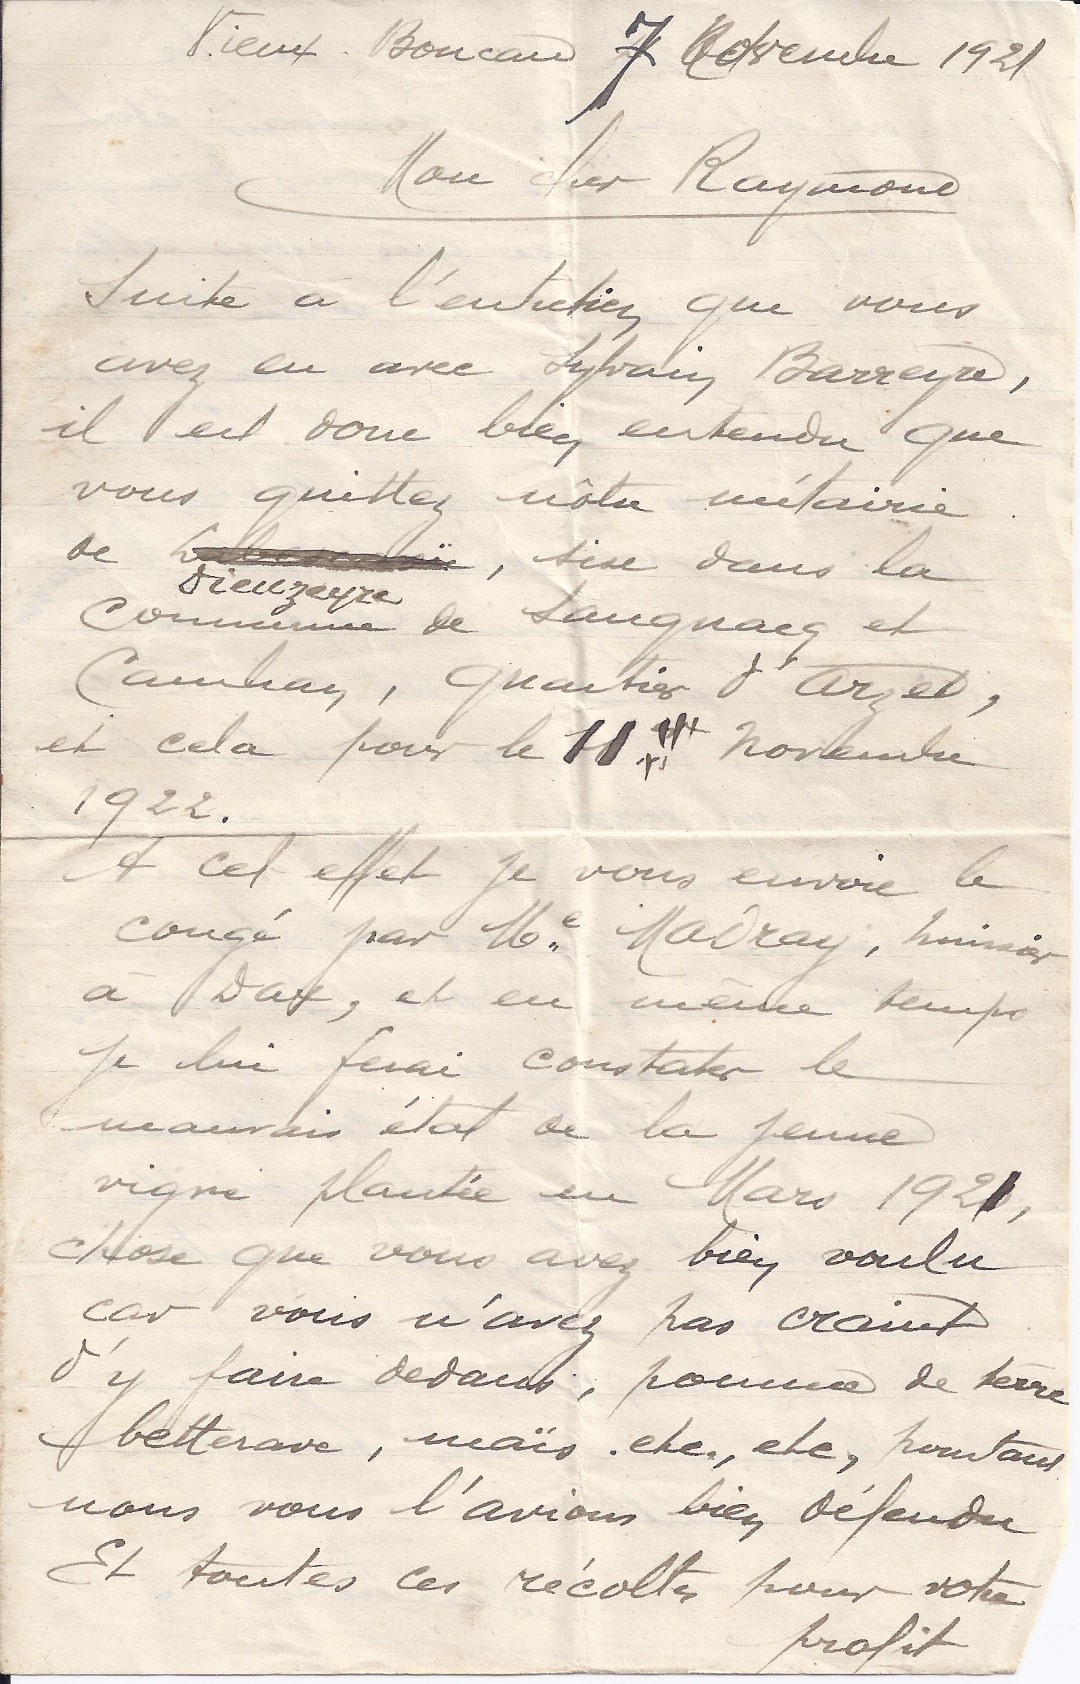 Vieux Boucau 7 Novembre 1921
Mon cher Raymond
Suite à l'entretien que vous
avez eu avec Sylvain Barreyre,
il est donc bien entendu que
vous quittez nôtre métairie
de , sise dans la
Dieuzeyre
Commune de Saugnacq et
Cambran, quartier d'Arzet,
et cela pour le 11 Novembre
1922.
A cet effet je vous envoie le
congé par Me Madray, huissier
à Dax, et en même temps
je lui ferai constater le
mauvais état de la jeune
vigne plantée en Mars 1921,
chose que vous avez bien voulu
car vous n'avez pas craint
d'y faire dedans, pomme de terre
betterave, maïs etc., etc, pourtant
nous vous l'avions bien défendu
Et toutes ces récoltes pour votre
profit